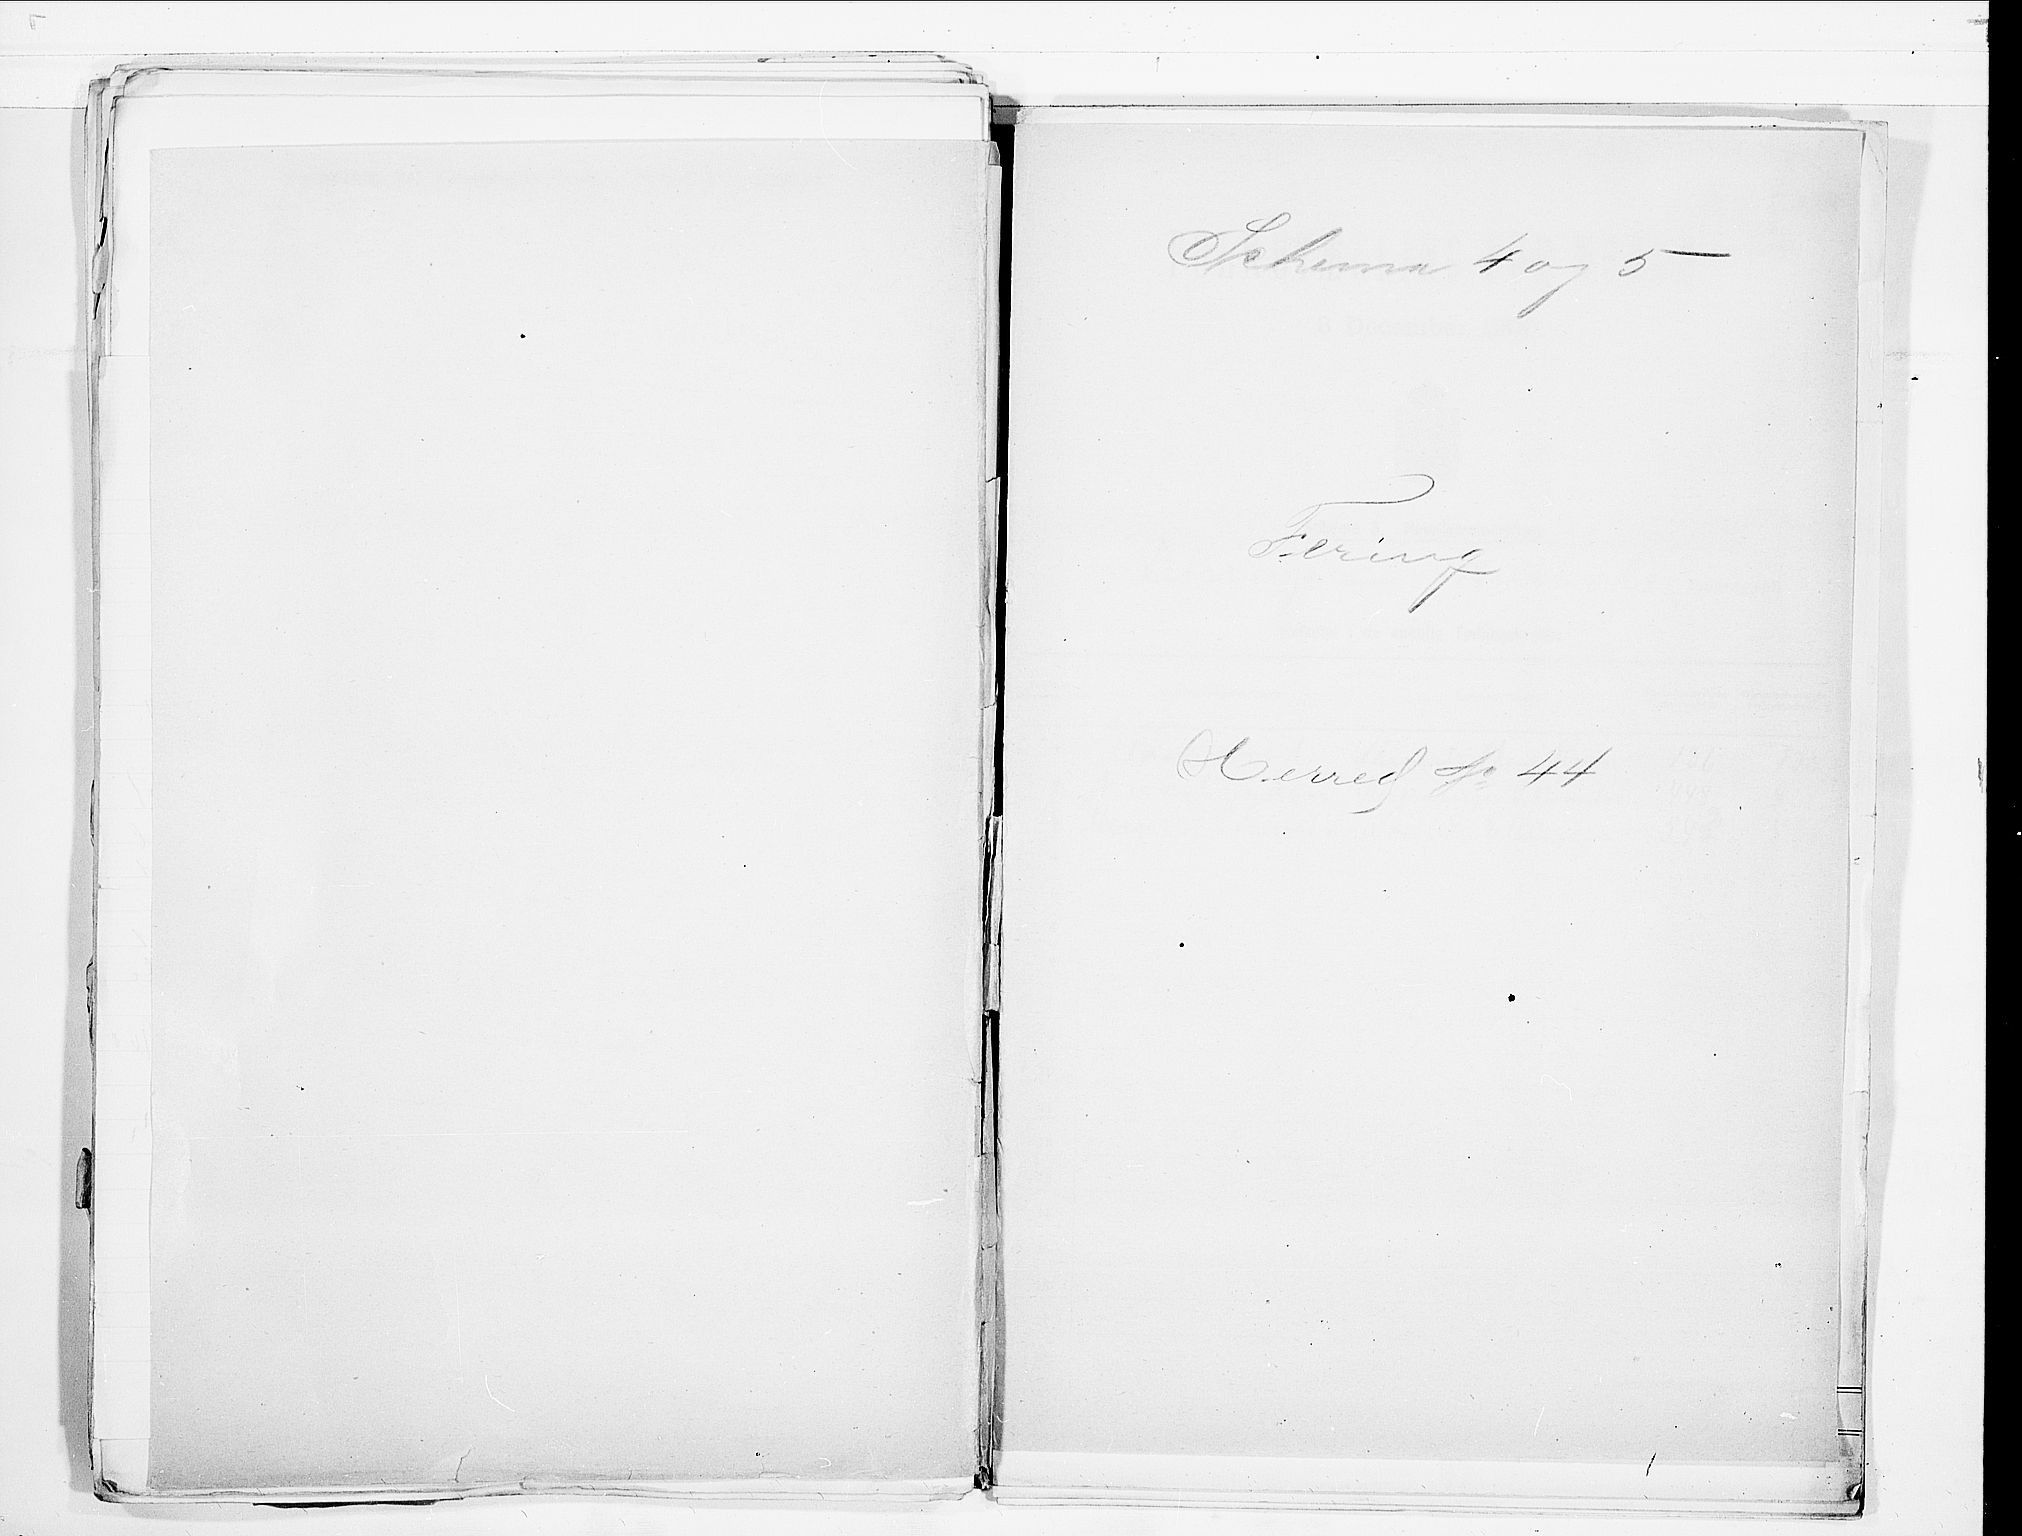 Schema 4 og 5
Fering
Herred No 44